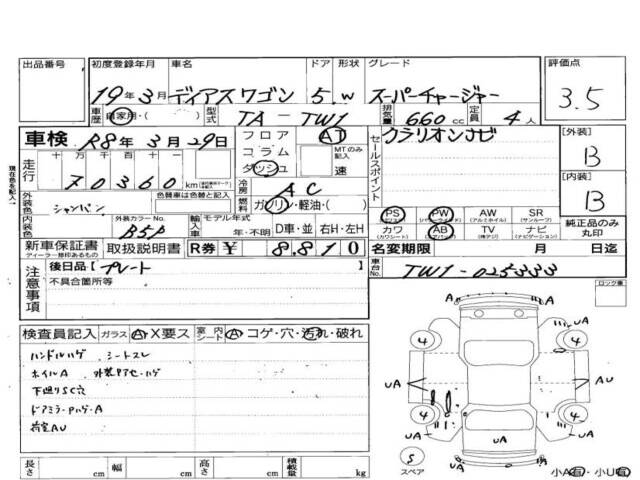 出品番号
初度登録年月 車名 ドア 形状 グレード 評価点
19年3月 ディアスワゴン 5.W スーパーチャージャー 3.5
車歴 自家用・( ) 型式 TA-TW1 排気量 660cc 定員 4人
車検 R8年3月29日 フロア AT クラリオンナビ [外装]
走行 十万 万 千 百 十 コラム MTのみ記入 セールスポイント B
70360 km ダッシュ 速
現在色を記入 外装色 シャンパン 色替車は色替と記入 冷房 AC [内装]
燃料 ガソリン・軽油・( ) B
内装色 外装カラーNo. B5P 輸入車 モデル年式 年・不明 D車・並 右H・左H
PS PW AW SR
(パワーウィンド) (アルミホイル) (サンルーフ)
カワ AB TV ナビ 純正品のみ丸印
(カワシート) (エアバッグ) (ナビゲーション)
新車保証書 取扱説明書 R券 ¥ 8.810 名変期限 月 日迄
ディーラー捺印あるもの
車台No. TW1-025333
注意事項 後日品 プレート ロック車
不具合箇所等
検査員記入 ガラス A X要ス 室内シート A コゲ・穴・汚れ・破れ
ハンドルハゲ シートスレ
ホイルA 外装Pアセ・ハゲ
下廻りSC穴
ドアミラーPハゲ・A
荷室AU
4 4
UA AU
4 4
UA UA UA
S
スペア 小A有・小U有
長さ cm 幅 cm 高さ cm 積載量 kg